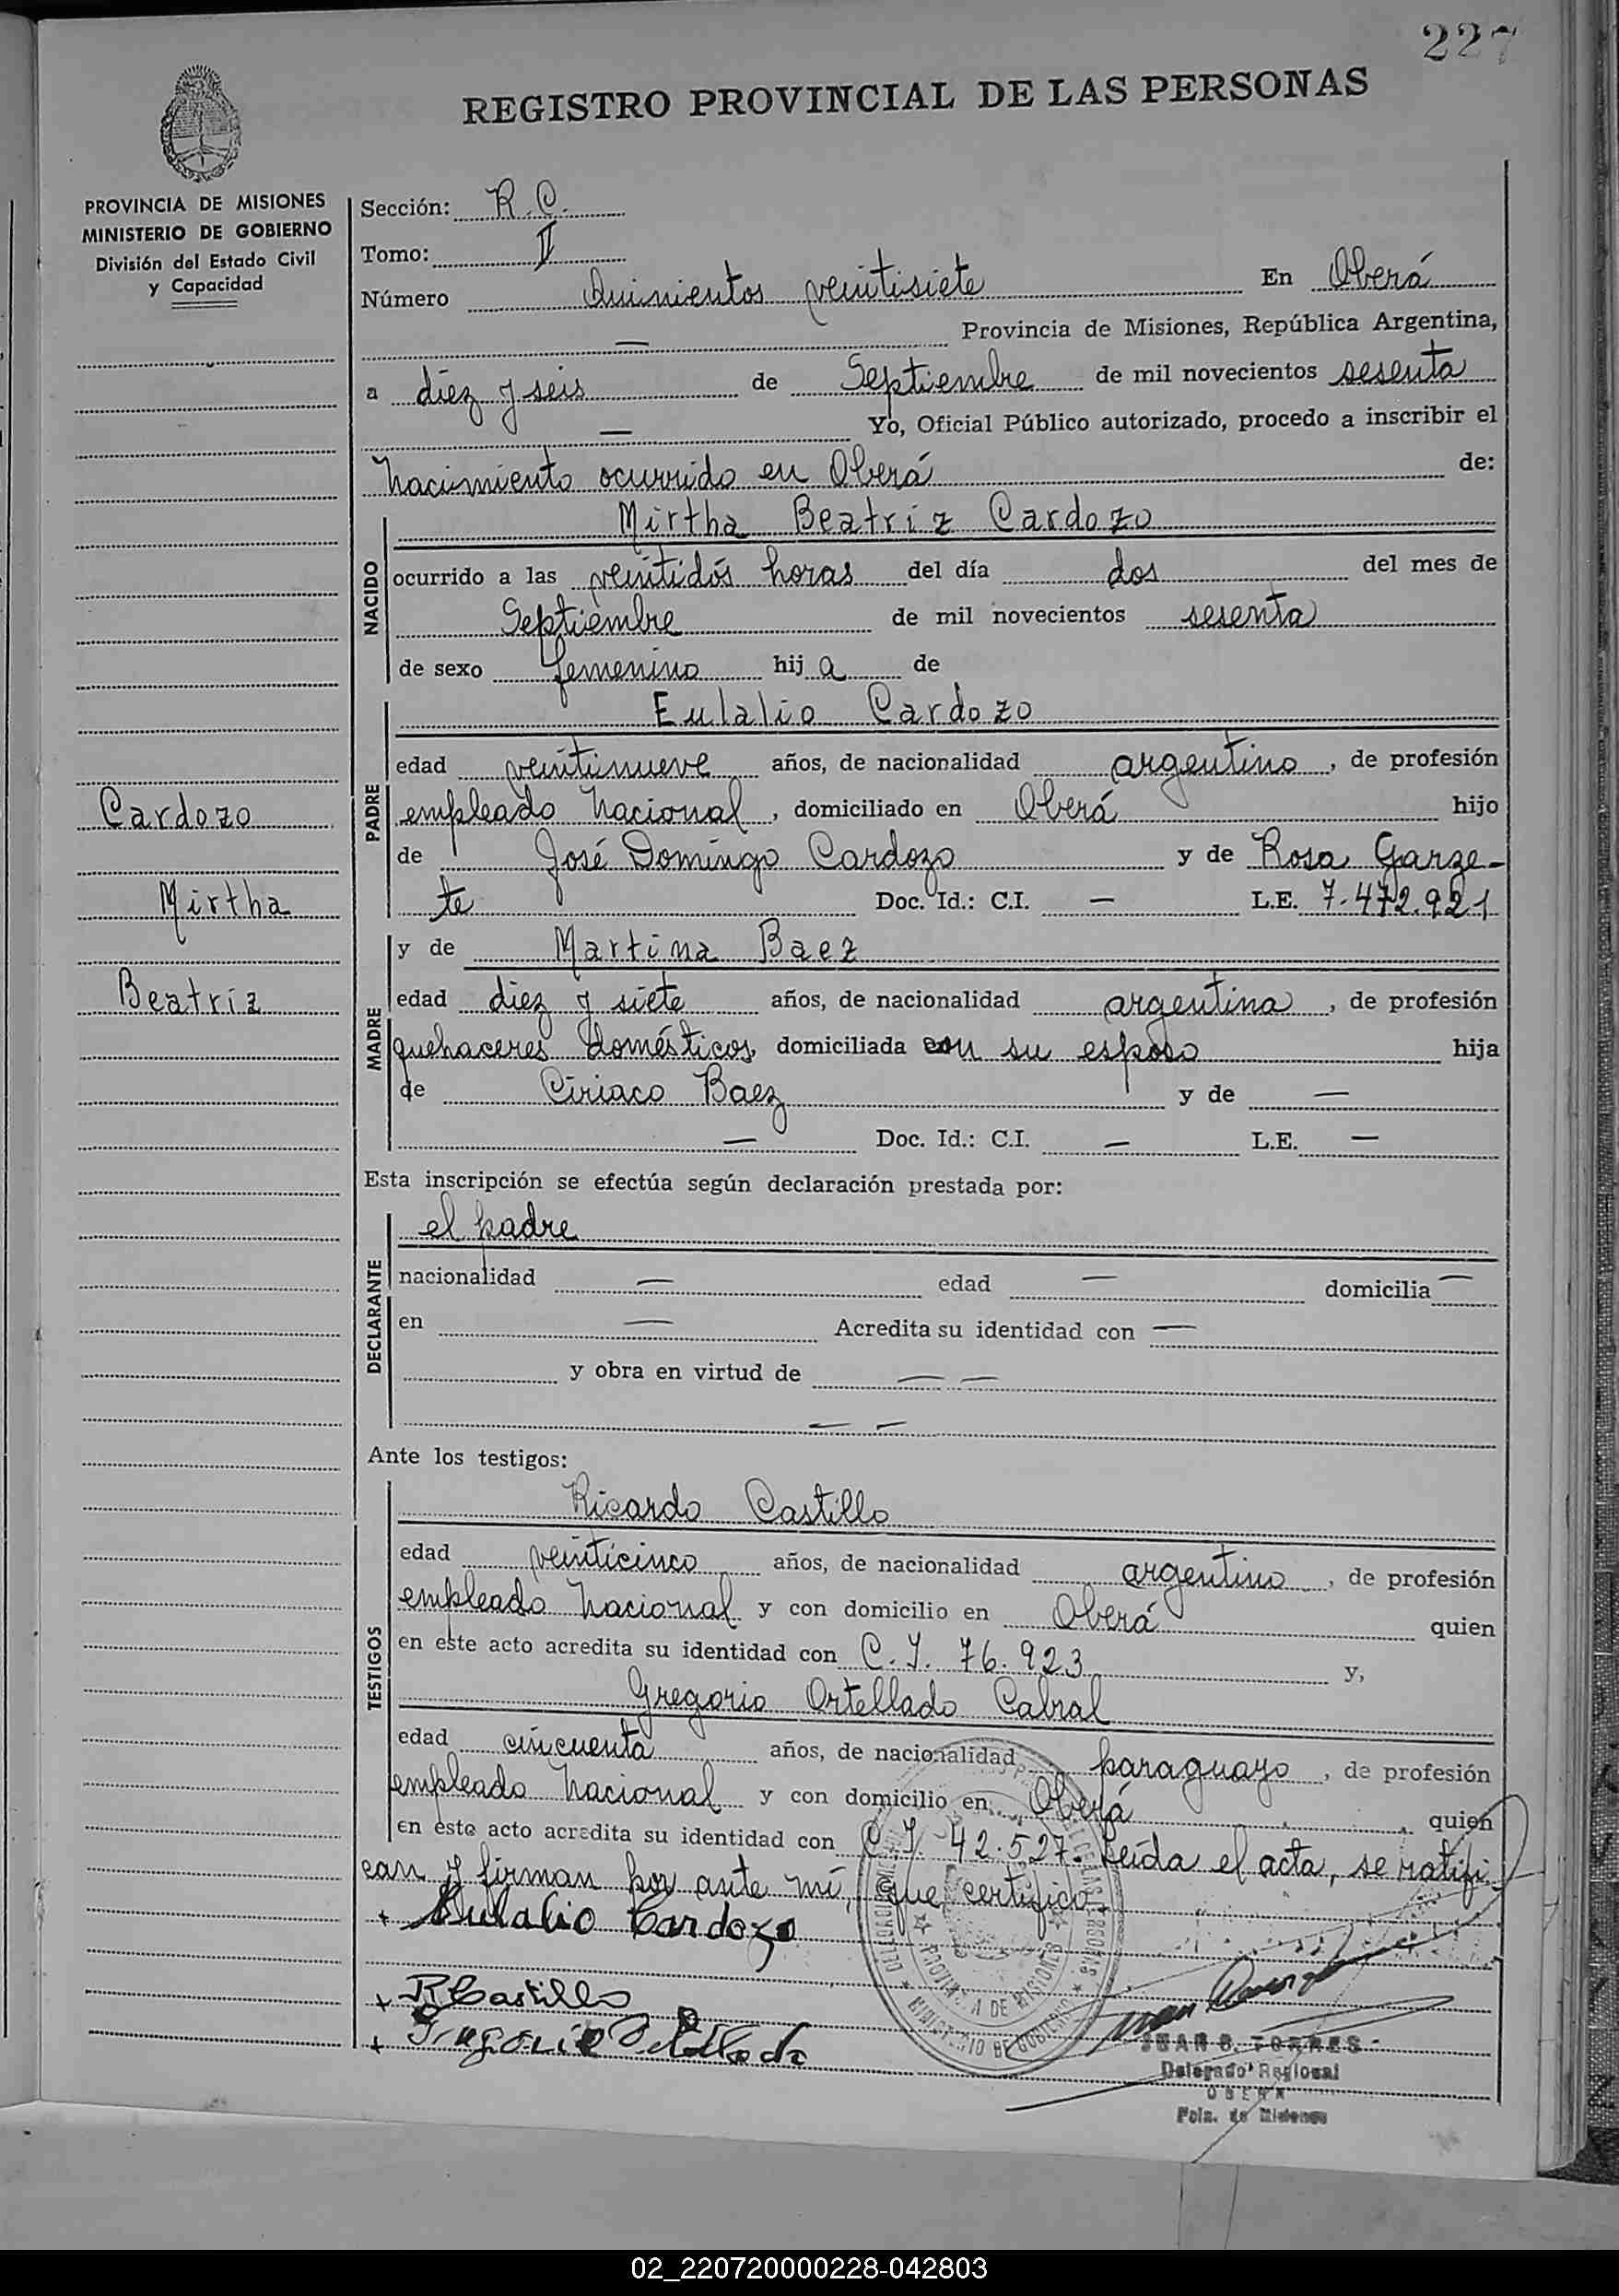 227
REGISTRO PROVINCIAL DE LAS PERSONAS
PROVINCIA DE MISIONES
MINISTERIO DE GOBIERNO
División del Estado Civil
y Capacidad
Cardozo
Mirtha
Beatríz
Sección: R.C.
Tomo: II
Número Quinientos veintisiete En Oberá
— Provincia de Misiones, República Argentina,
a diez y seis de Septiembre de mil novecientos sesenta
— Yo, Oficial Público autorizado, procedo a inscribir el
nacimiento ocurrido en Oberá de:
NACIDO
Mirtha Beatriz Cardozo
ocurrido a las veintidós horas del día dos del mes de
Septiembre de mil novecientos sesenta
de sexo femenino hija de
PADRE
Eulalio Cardozo
edad veintinueve años, de nacionalidad argentino, de profesión
empleado nacional, domiciliado en Oberá hijo
de José Domingo Cardozo y de Rosa Garze-
te Doc. Id.: C.I. — L.E. 7.472.921
MADRE
y de Martina Baez
edad diez y siete años, de nacionalidad argentina, de profesión
quehaceres domésticos, domiciliada con su esposo hija
de Ciriaco Baez y de —
— Doc. Id.: C.I. — L.E. —
Esta inscripción se efectúa según declaración prestada por:
DECLARANTE
el padre
nacionalidad — edad — domicilia —
en — Acredita su identidad con —
y obra en virtud de — —
— —
Ante los testigos:
TESTIGOS
Ricardo Castillo
edad veinticinco años, de nacionalidad argentino, de profesión
empleado nacional y con domicilio en Oberá quien
en este acto acredita su identidad con C.I. 76.923 y,
Gregorio Ortellado Cabral
edad cincuenta años, de nacionalidad paraguayo, de profesión
empleado nacional y con domicilio en Oberá quien
en este acto acredita su identidad con C.I. 42.527. Leída el acta, se ratifi
can y firman por ante mí, que certifico.
+ Eulalio Cardozo
+ R Castillo
+ Gregorio Ortellado
PROVINCIA DE MISIONES
MINISTERIO DE GOBIERNO
JUAN TORRES
Delegado Regional
OBERA
Pcia. de Misiones
02_220720000228-042803